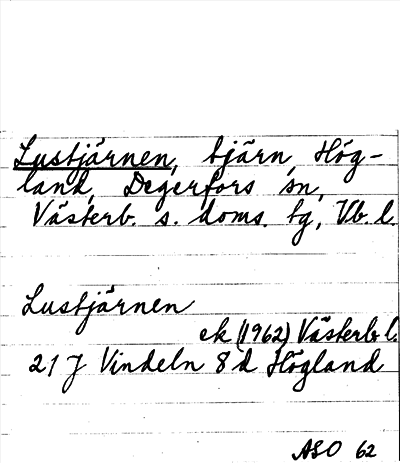 Lustjärnen, tjärn, Hög-
land, Degerfors sn,
Västerb. s. doms. tg, Vb. l.
Lustjärnen
ek (1962) Västerb. l.
21 J Vindeln 8 d Högland
ASO 62